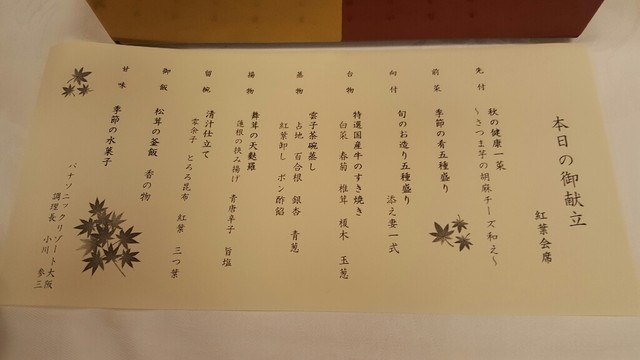 本日の御献立
紅葉会席
先付
秋の健康一菜
～さつま芋の胡麻チーズ和え～
前菜
季節の肴五種盛り
向付
旬のお造り五種盛り
添え妻一式
台物
特選国産牛のすき焼き
白菜 春菊 椎茸 榎木 玉葱
蒸物
雲子茶碗蒸し
占地 百合根 銀杏 青葱
紅葉卸し ポン酢餡
揚物
舞茸の天麩羅
蓮根の挟み揚げ 青唐辛子 旨塩
留椀
清汁仕立て
雲余子 とろろ昆布 紅葉 三つ葉
御飯
松茸の釜飯 香の物
甘味
季節の水菓子
パナソニックリゾート大阪
調理長 小川